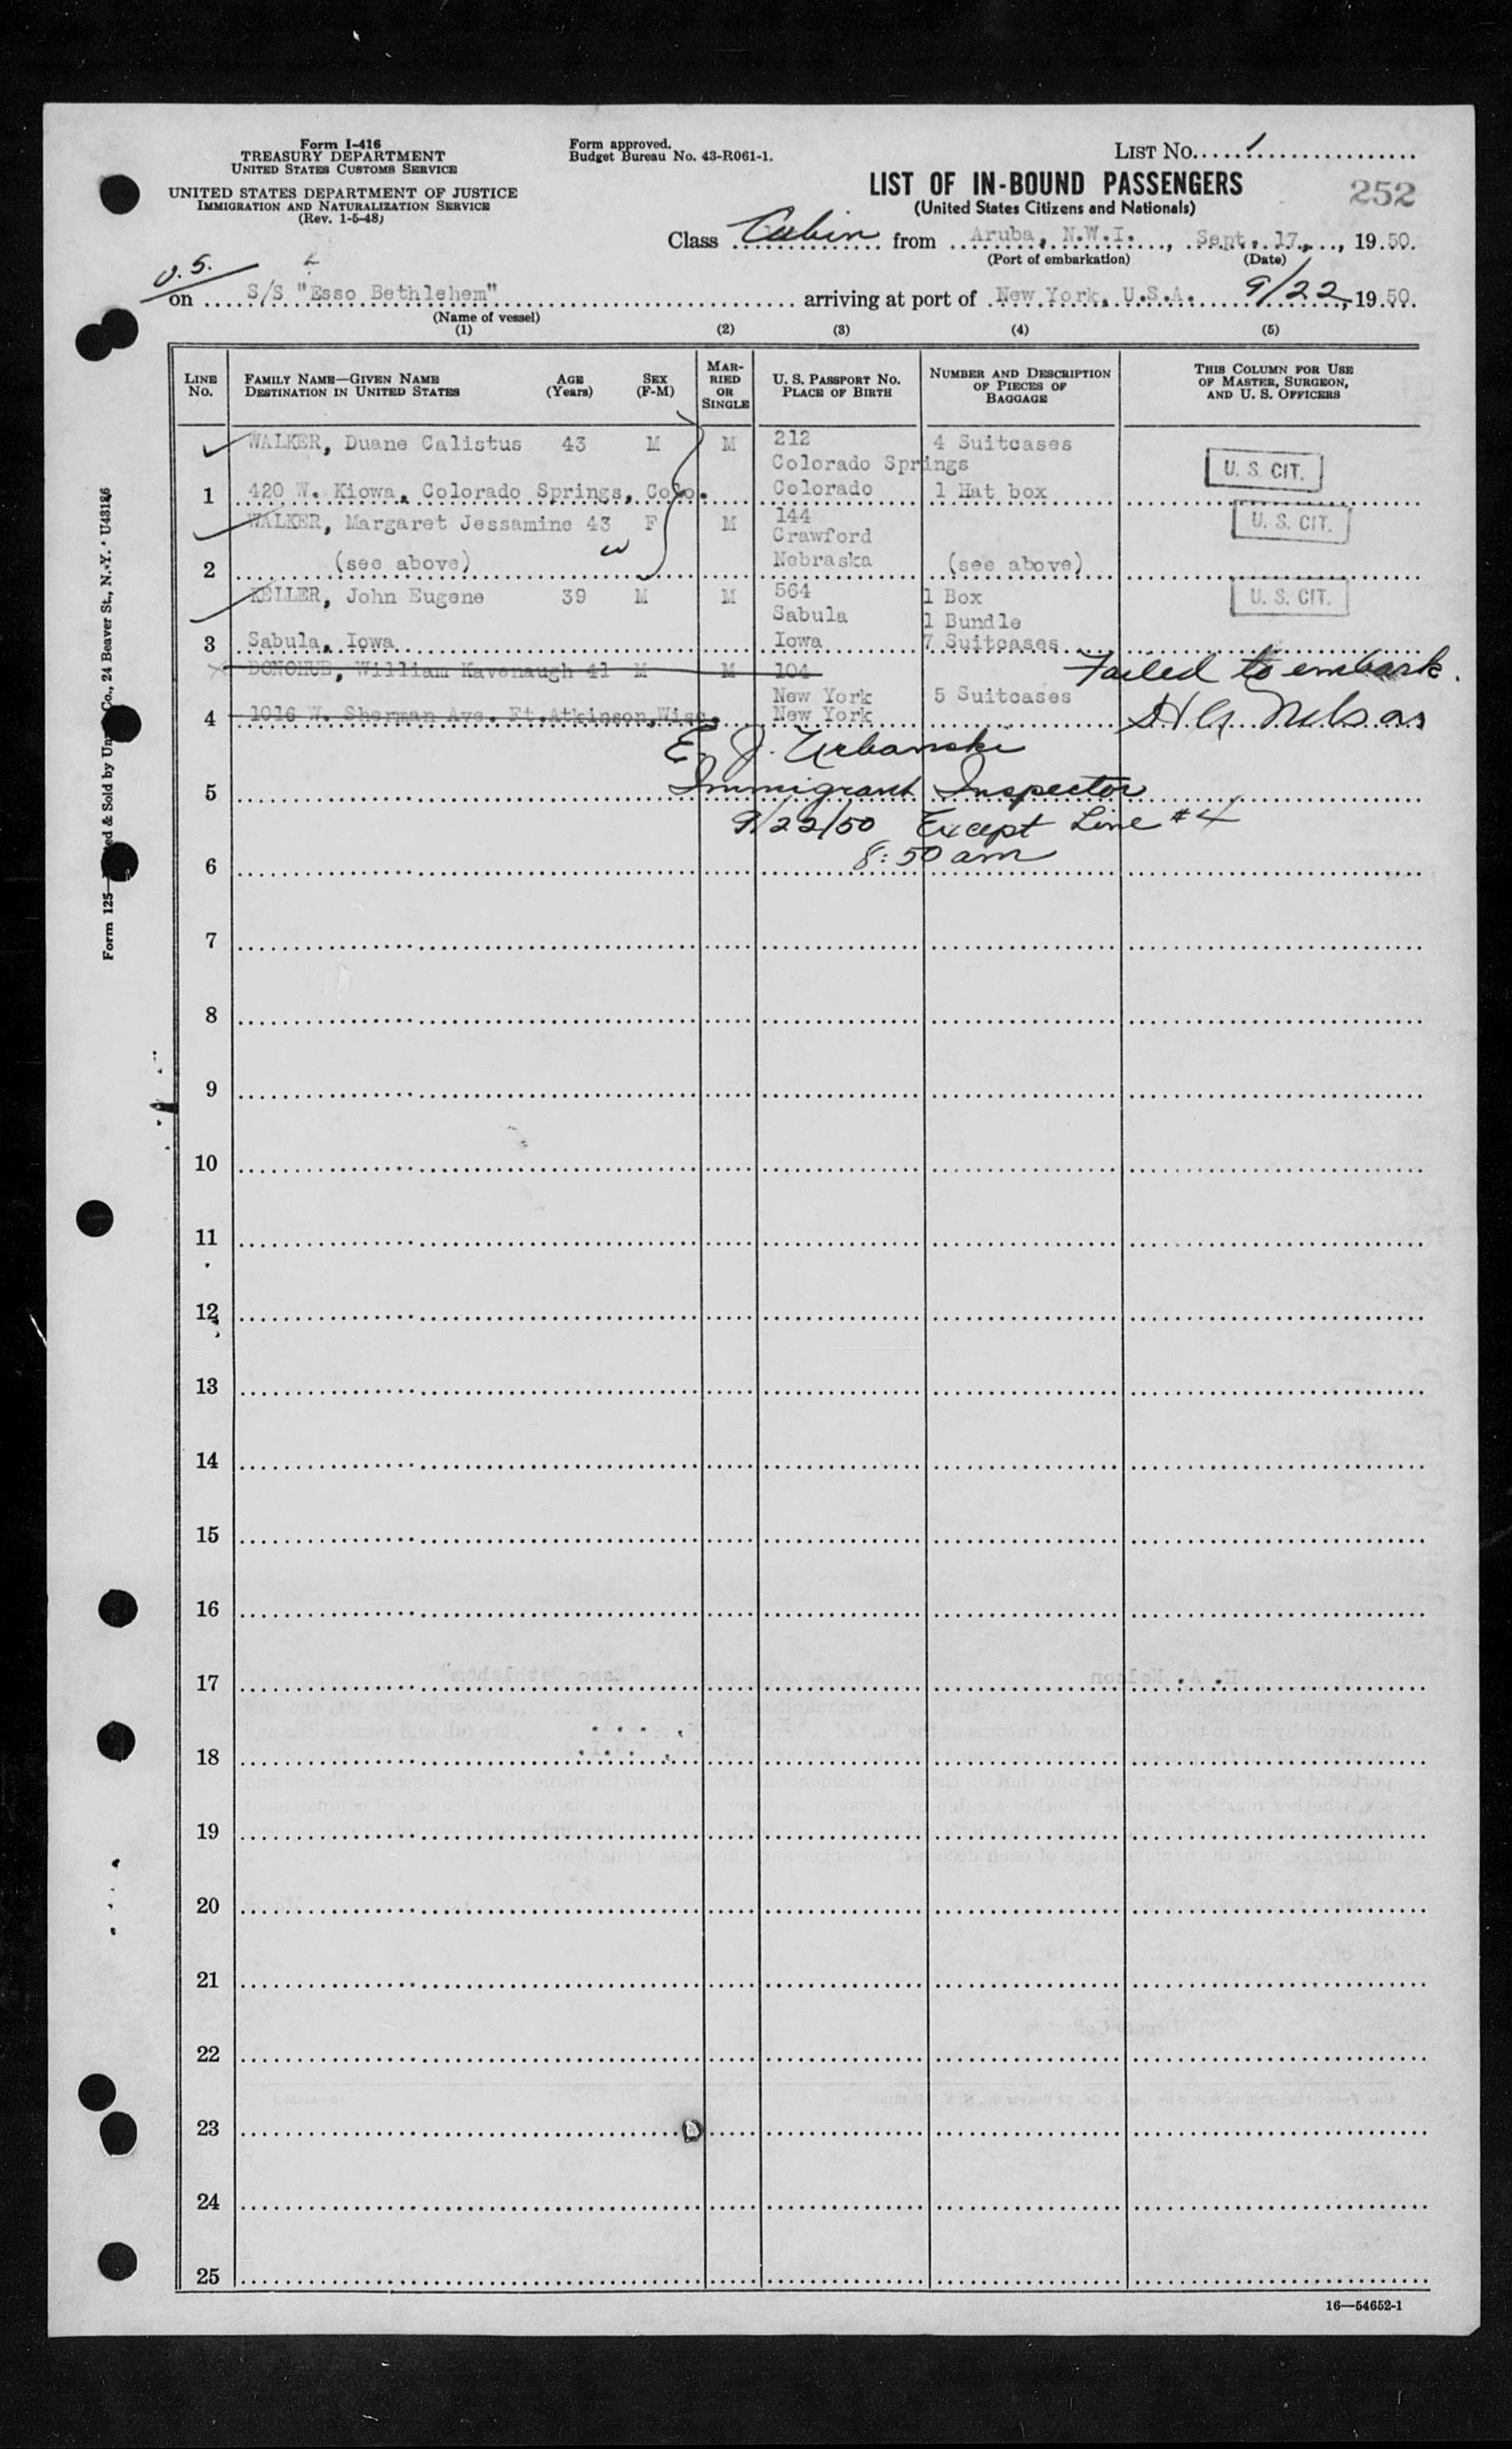 Form I-416
TREASURY DEPARTMENT
UNITED STATES CUSTOMS SERVICE
UNITED STATES DEPARTMENT OF JUSTICE
IMMIGRATION AND NATURALIZATION SERVICE
(Rev. 1-5-48)
Form approved.
Budget Bureau No. 43-R061-1.
LIST No. 1
LIST OF IN-BOUND PASSENGERS
(United States Citizens and Nationals)
252
Class Cabin from Aruba, N.W.I., Sept. 17, 1950.
(Port of embarkation) (Date)
U.S.
on S/S "Esso Bethlehem" arriving at port of New York, U.S.A. 9/22, 1950.
(Name of vessel)
(1) (2) (3) (4) (5)
LINE No. FAMILY NAME—GIVEN NAME DESTINATION IN UNITED STATES AGE (Years) SEX (F-M) MARRIED OR SINGLE U. S. PASSPORT No. PLACE OF BIRTH NUMBER AND DESCRIPTION OF PIECES OF BAGGAGE THIS COLUMN FOR USE OF MASTER, SURGEON, AND U. S. OFFICERS
WALKER, Duane Calistus 43 M M 212 4 Suitcases
Colorado Springs U. S. CIT.
1 420 W. Kiowa, Colorado Springs, Colo. Colorado 1 Hat box
WALKER, Margaret Jessamine 43 F M 144 U. S. CIT.
Crawford
w
2 (see above) Nebraska (see above)
KELLER, John Eugene 39 M M 564 1 Box U. S. CIT.
Sabula 1 Bundle
3 Sabula, Iowa Iowa 7 Suitcases
DONOHUE, William Kavenaugh 41 M M 104 Failed to embark.
New York 5 Suitcases
4 1016 W. Sherman Ave. Ft.Atkinson,Wisc. New York H A Nelson
E. J. Urbanski
5 Immigrant Inspector
9/22/50 Except Line #4
6 8:50 am
7
8
9
10
11
12
13
14
15
16
17
18
19
20
21
22
23
24
25
16—54652-1
Co., 24 Beaver St., N.Y. U43186
Form 125
& Sold by